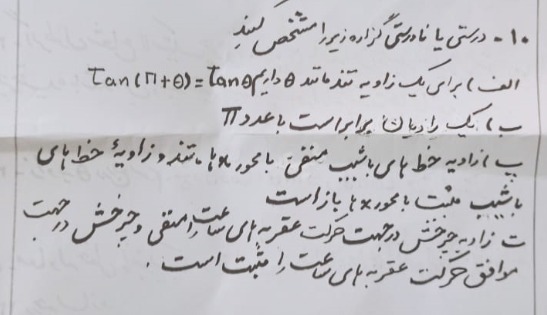 ۱۰- درستی یا نادرستی گزاره زیر را مشخص کنید
الف) برای یک زاویه تند مانند θ داریم tan(π+θ)=tanθ
ب) یک رادیان برابر است با عدد π
پ) زاویه خط های با شیب منفی با محور xها، تند و زاویهٔ خط های
با شیب مثبت با محور xها باز است
ت زاویه چرخش در جهت حرکت عقربه های ساعت را منفی و چرخش در جهت
موافق حرکت عقربه های ساعت را مثبت است.